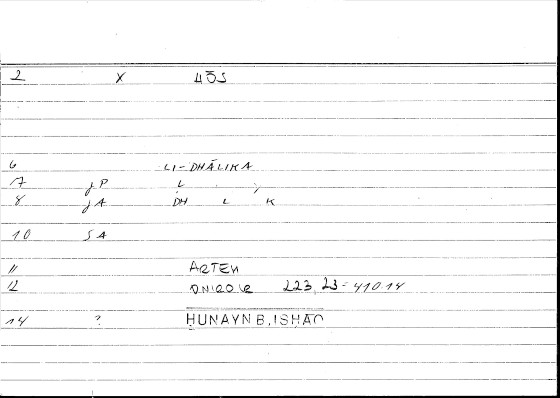 2 X ЦŌS
6 LI-DHĀLIKA
17 jP L
8 jA DH L K
10 SA
11 ARTEM
12 ONIROKR 223,23-410.14
14 ? HUNAYN B. ISHAQ